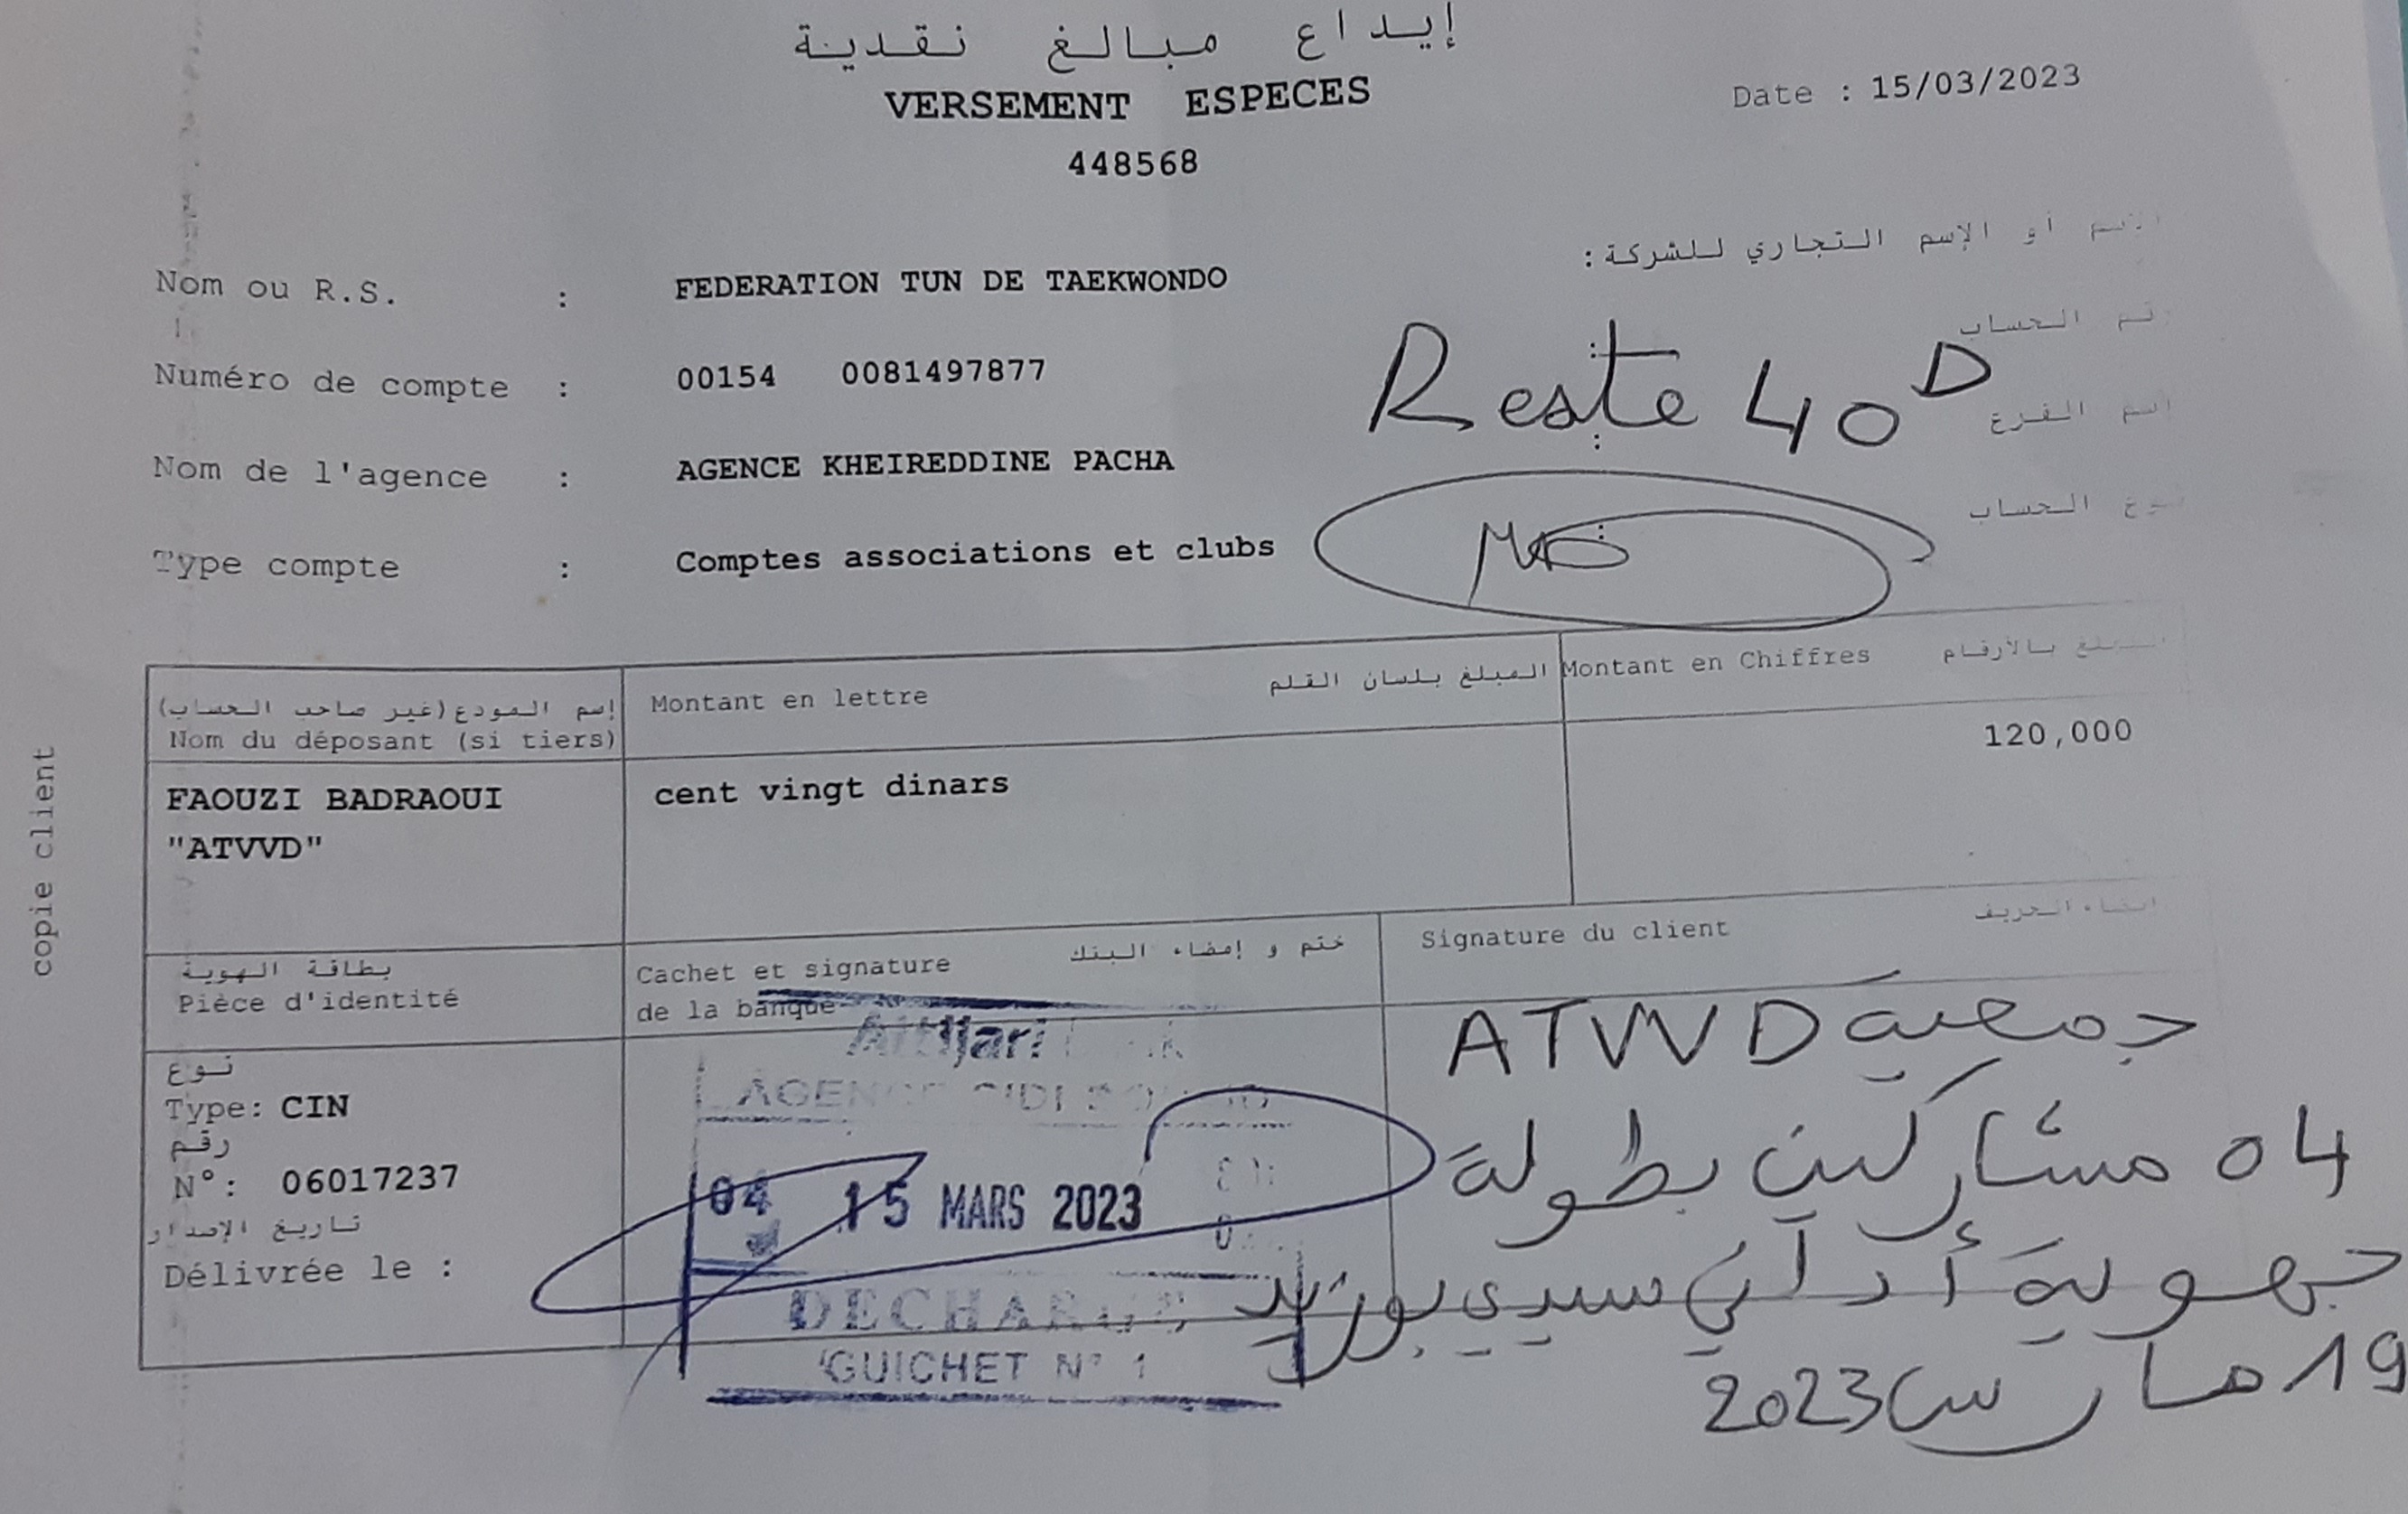 إيداع مبالغ نقدية
VERSEMENT ESPECES
Date : 15/03/2023
448568
الإسم أو الإسم التجاري للشركة :
Nom ou R.S. : FEDERATION TUN DE TAEKWONDO
رقم الحساب :
Numéro de compte : 00154 0081497877
Reste 40 D
اسم الفرع :
Nom de l'agence : AGENCE KHEIREDDINE PACHA
نوع الحساب :
Type compte : Comptes associations et clubs
إسم المودع (غير صاحب الحساب)
Nom du déposant (si tiers)
Montant en lettre المبلغ بلسان القلم
Montant en Chiffres المبلغ بالأرقام
FAOUZI BADRAOUI
"ATVVD"
cent vingt dinars
120,000
بطاقة الهوية
Pièce d'identité
Cachet et signature ختم و إمضاء البنك
de la banque
Signature du client امضاء الحريف
نوع
Type: CIN
رقم
N°: 06017237
تاريخ الإصدار
Délivrée le :
Attijari
04 15 MARS 2023
DECHARGE
GUICHET N° 1
جمعية ATVVD
04 مشاركين بطولة
جهوية أداني سيدي بوزيد
19 مارس 2023
copie client